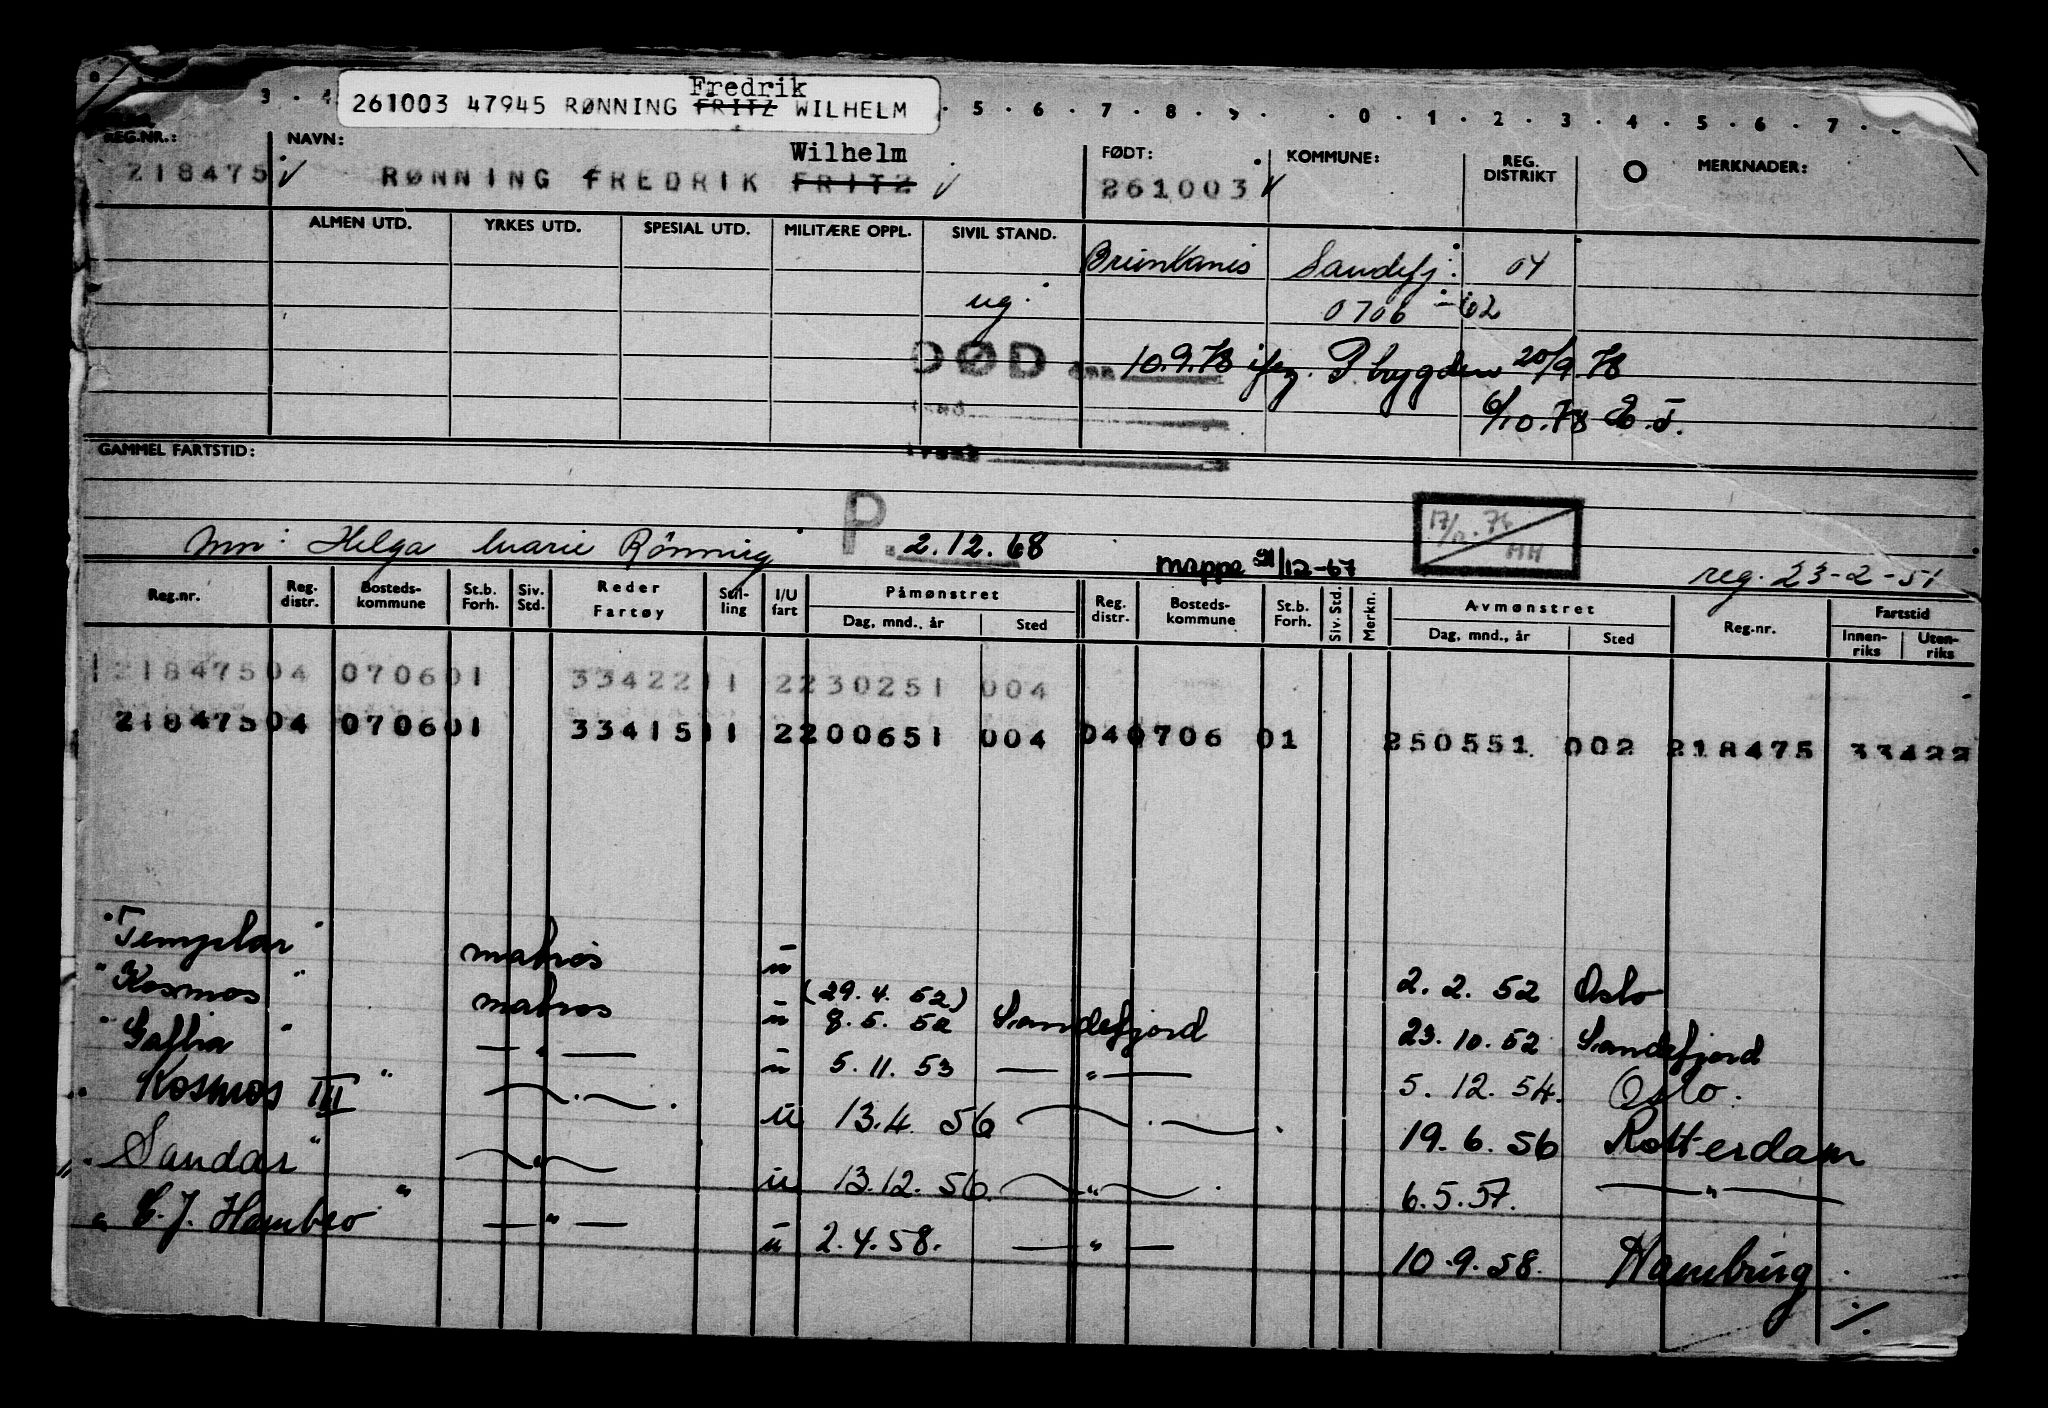 Fredrik
261003 47945 RØNNING FRITZ WILHELM
3 . 4 . 5 . 6 . 7 . 8 . 9 . . 0 . 1 . 2 . 3 . 4 . 5 . 6 . 7 .
REG.NR.: NAVN: Wilhelm FØDT: KOMMUNE: REG. DISTRIKT O MERKNADER:
218475 ✓ RØNNING FREDRIK FRITZ ✓ 261003 ✓
ALMEN UTD. YRKES UTD. SPESIAL UTD. MILITÆRE OPPL. SIVIL STAND.
Sandefj: 04
ug. 0706 - 62
DØD den 10.9.78 20/9.78
6/10.78 E.T.
GAMMEL FARTSTID:
P. 2.12.68
Mn: Helga Marie Rönning
mappe 21/12-67
17/ . 74 HH
reg. 23-2-51
Reg.nr. Reg. distr. Bosteds- kommune St.b. Forh. Siv. Std. Reder Fartøy Stil- ling I/U fart Påmønstret Dag, mnd., år Sted Reg. distr. Bosteds- kommune St.b. Forh. Siv. Std. Merkn. Avmønstret Dag, mnd., år Sted Reg.nr. Fartstid Innen- riks Uten- riks
218475 04 0706 01 33422 11 2 230251 004
218475 04 0706 01 33415 11 2 200651 004 04 0706 01 250551 002 218475 33422
"Templar" matros u 2.2.52 Oslo
"Kosmos" matros u (29.4.52) 8.5.52 Sandefjord 23.10.52 Sandefjord
" " — " — u 5.11.53 — " — 5.12.54. Oslo.
" Kosmos III " — " — u 13.4.56 — " — 19.6.56 Rotterdam
" Sandar " — " — u 13.12.56 — " — 6.5.57. — " —
" C.J. Hambro " — " — u 2.4.58. — " — 10.9.58. Hamburg.
./.